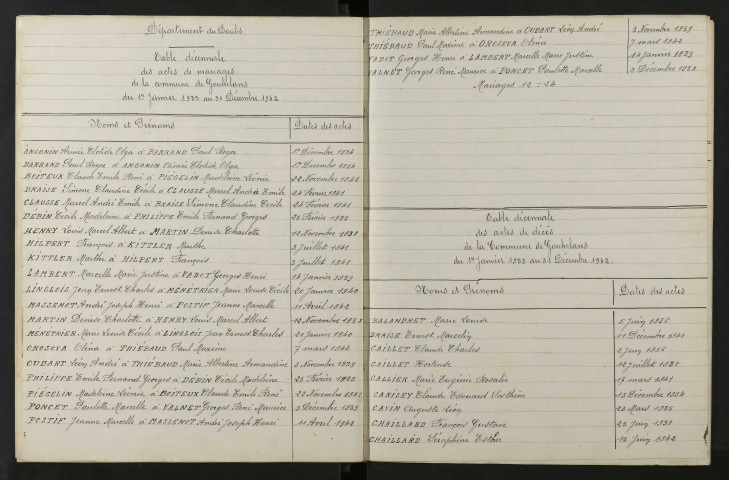 Département du Doubs
Table décennale
des actes de mariages
de la commune de Gondenans
du 1er Janvier 1933 au 31 Décembre 1942
Noms et Prénoms Dates des actes
ANGONIN Aimée Clotide Olga à BARRAND Paul Roger 1er Décembre 1934
BARRAND Paul Roger à ANGONIN Aimée Clotide Olga 1er Décembre 1934
BOITEUX Claude Emile René à PIÉGELIN Madeleine Léonie 22 Novembre
BRAISE Simone Claudine Cécile à CLAUSSE Marcel André Emile 24 Février 1941
CLAUSSE Marcel André Emile à BRAISE Simone Claudine Cécile 24 Février 1941
DEBIN Cécile Madeleine à PHILIPPE Emile Fernand Georges 25 Février
HENRY Louis Marcel Albert à MARTIN Denise Charlotte 12 Novembre 1938
HILPERT François à KITTLER Marthe 3 Juillet 1941
KITTLER Marthe à HILPERT François 3 Juillet 1941
LAMBERT Marcelle Marie Justine à VADOT Georges Henri 14 Janvier 1939
LINGLOIS Jean Ernest Charles à MÉNÉTRIER Marie Louise Cécile 20 Janvier 1940
MASSENOT André Joseph Henri à POSTIF Jeanne Marcelle 11 Avril 1942
MARTIN Denise Charlotte à HENRY Louis Marcel Albert 12 Novembre 1938
MÉNÉTRIER Marie Louise Cécile à LINGLOIS Jean Ernest Charles 20 Janvier 1940
OROSOVA Oléna à THIÉBAUD Paul Maxime 7 mars 1942
OUDART Léon André à THIÉBAUD Marie Albertine Armandine 3 Novembre 1939
PHILIPPE Emile Fernand Georges à DEBIN Cécile Madeleine 25 Février
PIÉGELIN Madeleine Léonie à BOITEUX Claude Emile René 22 Novembre
PONCET Paulette Marcelle à VALNET Georges René Maurice 3 Décembre
POSTIF Jeanne Marcelle à MASSENOT André Joseph Henri 11 Avril 1942
THIÉBAUD Marie Albertine Armandine à OUDART Léon André 3 Novembre 1939
THIÉBAUD Paul Maxime à OROSOVA Oléna 7 mars 1942
VADOT Georges Henri à LAMBERT Marcelle Marie Justine 14 Janvier 1939
VALNET Georges René Maurice à PONCET Paulette Marcelle 3 Décembre
Mariages 12 = 24
Table décennale
des actes de décès
de la Commune de Gondenans
du 1er Janvier 1933 au 31 Décembre 1942
Noms et Prénoms Dates des actes
BALANDRET Marie Louise 5 Juin
BRAISE Ernest Marcelin 11 Décembre 1940
CAILLET Claude Charles 2 Juin
CAILLET Hortense 12 Juillet
CALLIER Marie Eugénie Rosalie 17 mars 1941
CARILEY Claude Edouard 13 Décembre 1934
CAVIN Auguste Léon 20 Mars
CHAILLARD François Gustave 25 Juin
CHAILLARD Séraphine Esther 16 Juin 1942